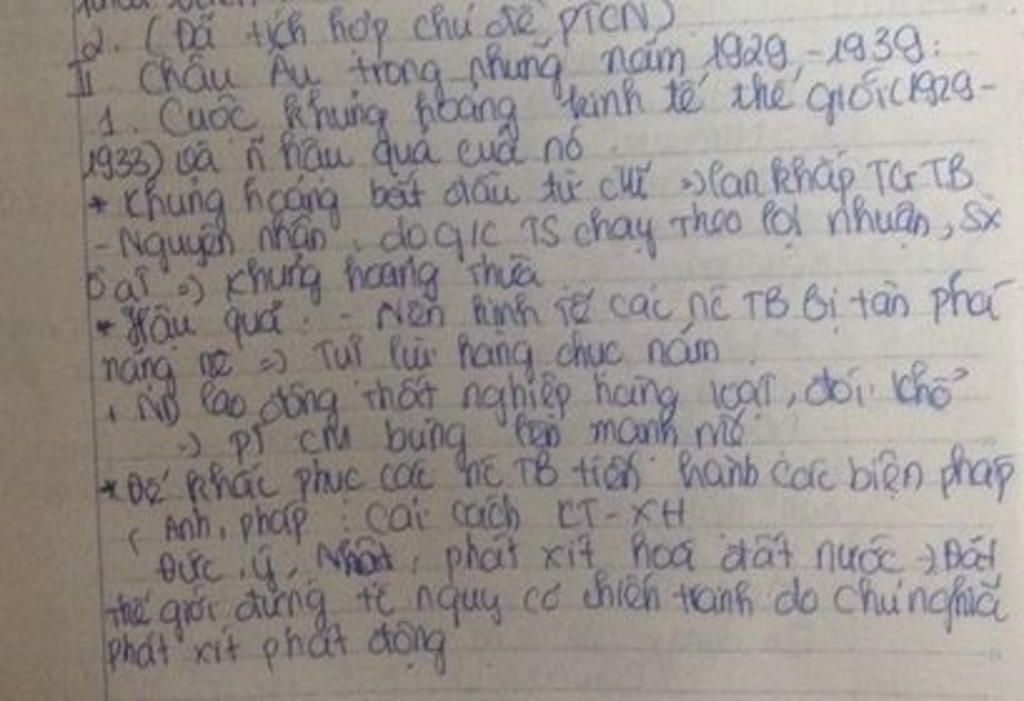 2. (Đã tích hợp chủ đề PTCN)
II Châu Âu trong những năm 1929-1939:
1. Cuộc khủng hoảng kinh tế thế giới (1929-
1933) và n~ hậu quả của nó
* Khủng hoảng bắt đầu từ => lan khắp TG TB
- Nguyên nhân: do g/c TS chạy theo lợi nhuận, SX
ồ ạt => Khủng hoảng thừa
* Hậu quả: - Nền kinh tế các nc TB Bị tàn phá
nặng nề => Tụt lùi hàng chục năm
, ND lao động thất nghiệp hàng loạt, đói khổ
=> PT CM bùng lên mạnh mẽ
* Để khắc phục các nc TB tiến hành các biện pháp
( Anh, pháp: cải cách KT-XH
Đức, ý, Nhật, phát xít hoá đất nước => Đặt
thế giới đứng tc nguy cơ chiến tranh do chủ nghĩa
phát xít phát động